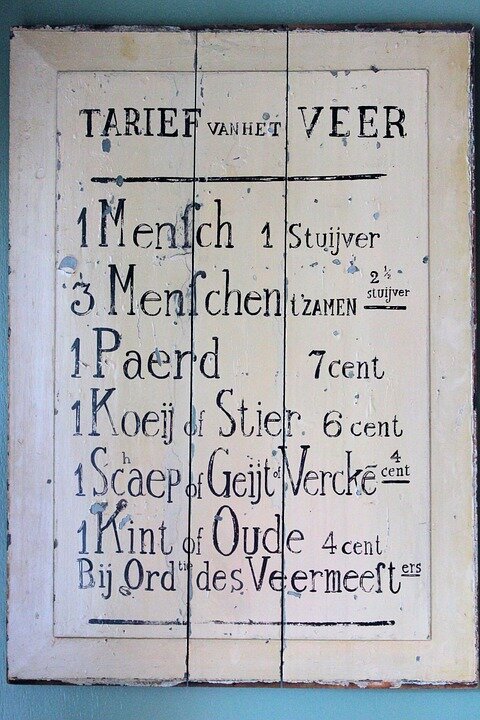 TARIEF VAN HET VEER
1 Menſch 1 Stuijver
3 Menſchen t'ZAMEN 2½ stuijver
1 Paerd 7 cent
1 Koeij of Stier. 6 cent
1 Schaep of Geijt of Verckē 4 cent
1 Kint of Oude 4 cent
Bij Ordtie des Veermeeſters